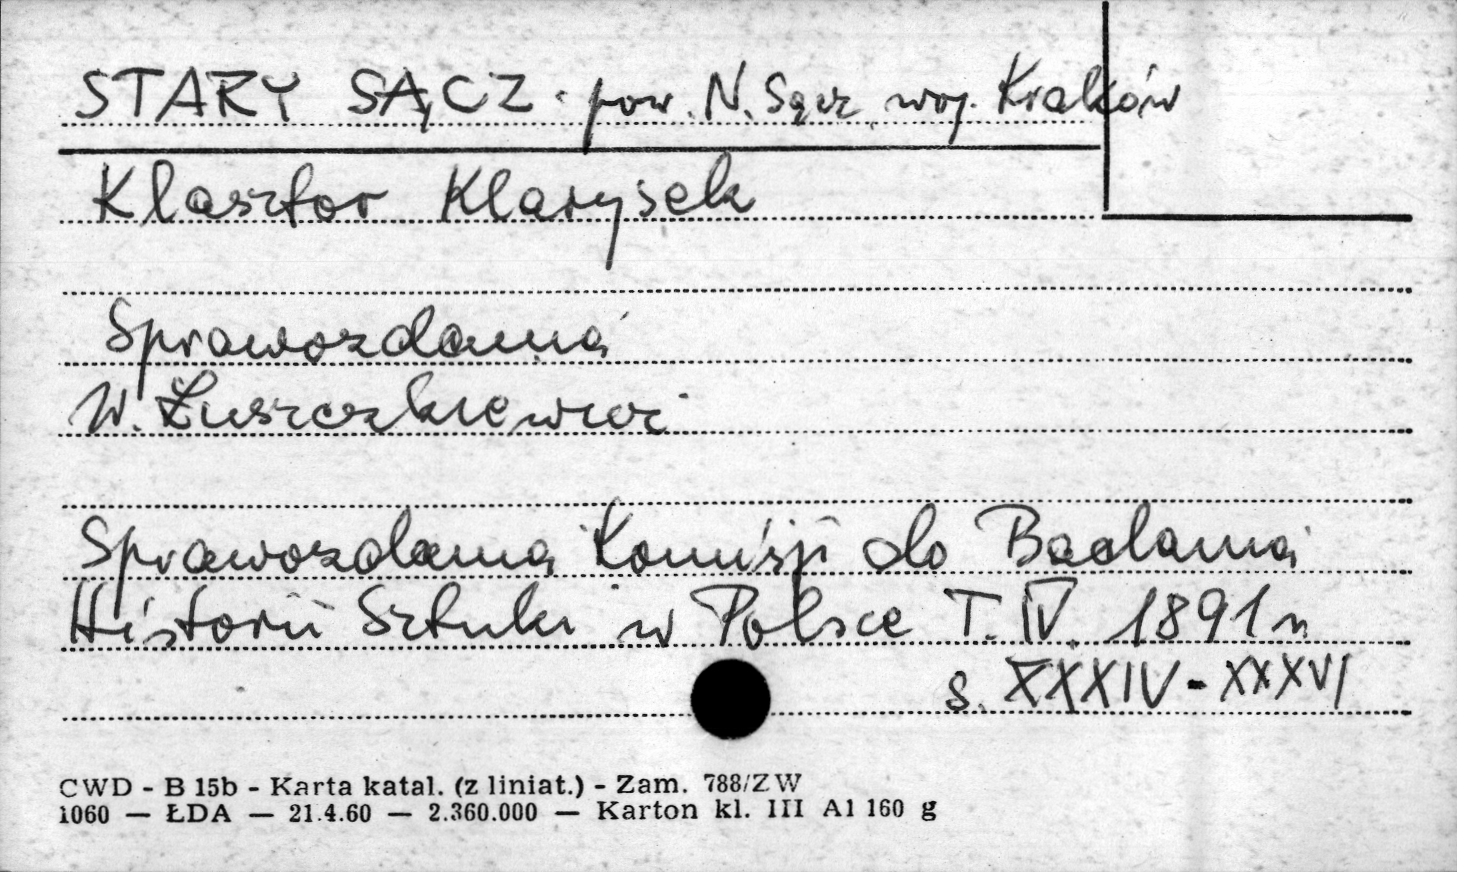 STARY SĄCZ · pow. N. Sącz, woj. Kraków
Klasztor Klarysek
Sprawozdania
W. Łuszczkiewicz
Sprawozdania Komisji do Badania
Historii Sztuki w Polsce T. IV. 1891 r.
s. XXXIV - XXXVI
CWD - B 15b - Karta katal. (z liniat.) - Zam. 788/ZW
1060 — ŁDA — 21.4.60 — 2.360.000 — Karton kl. III A1 160 g